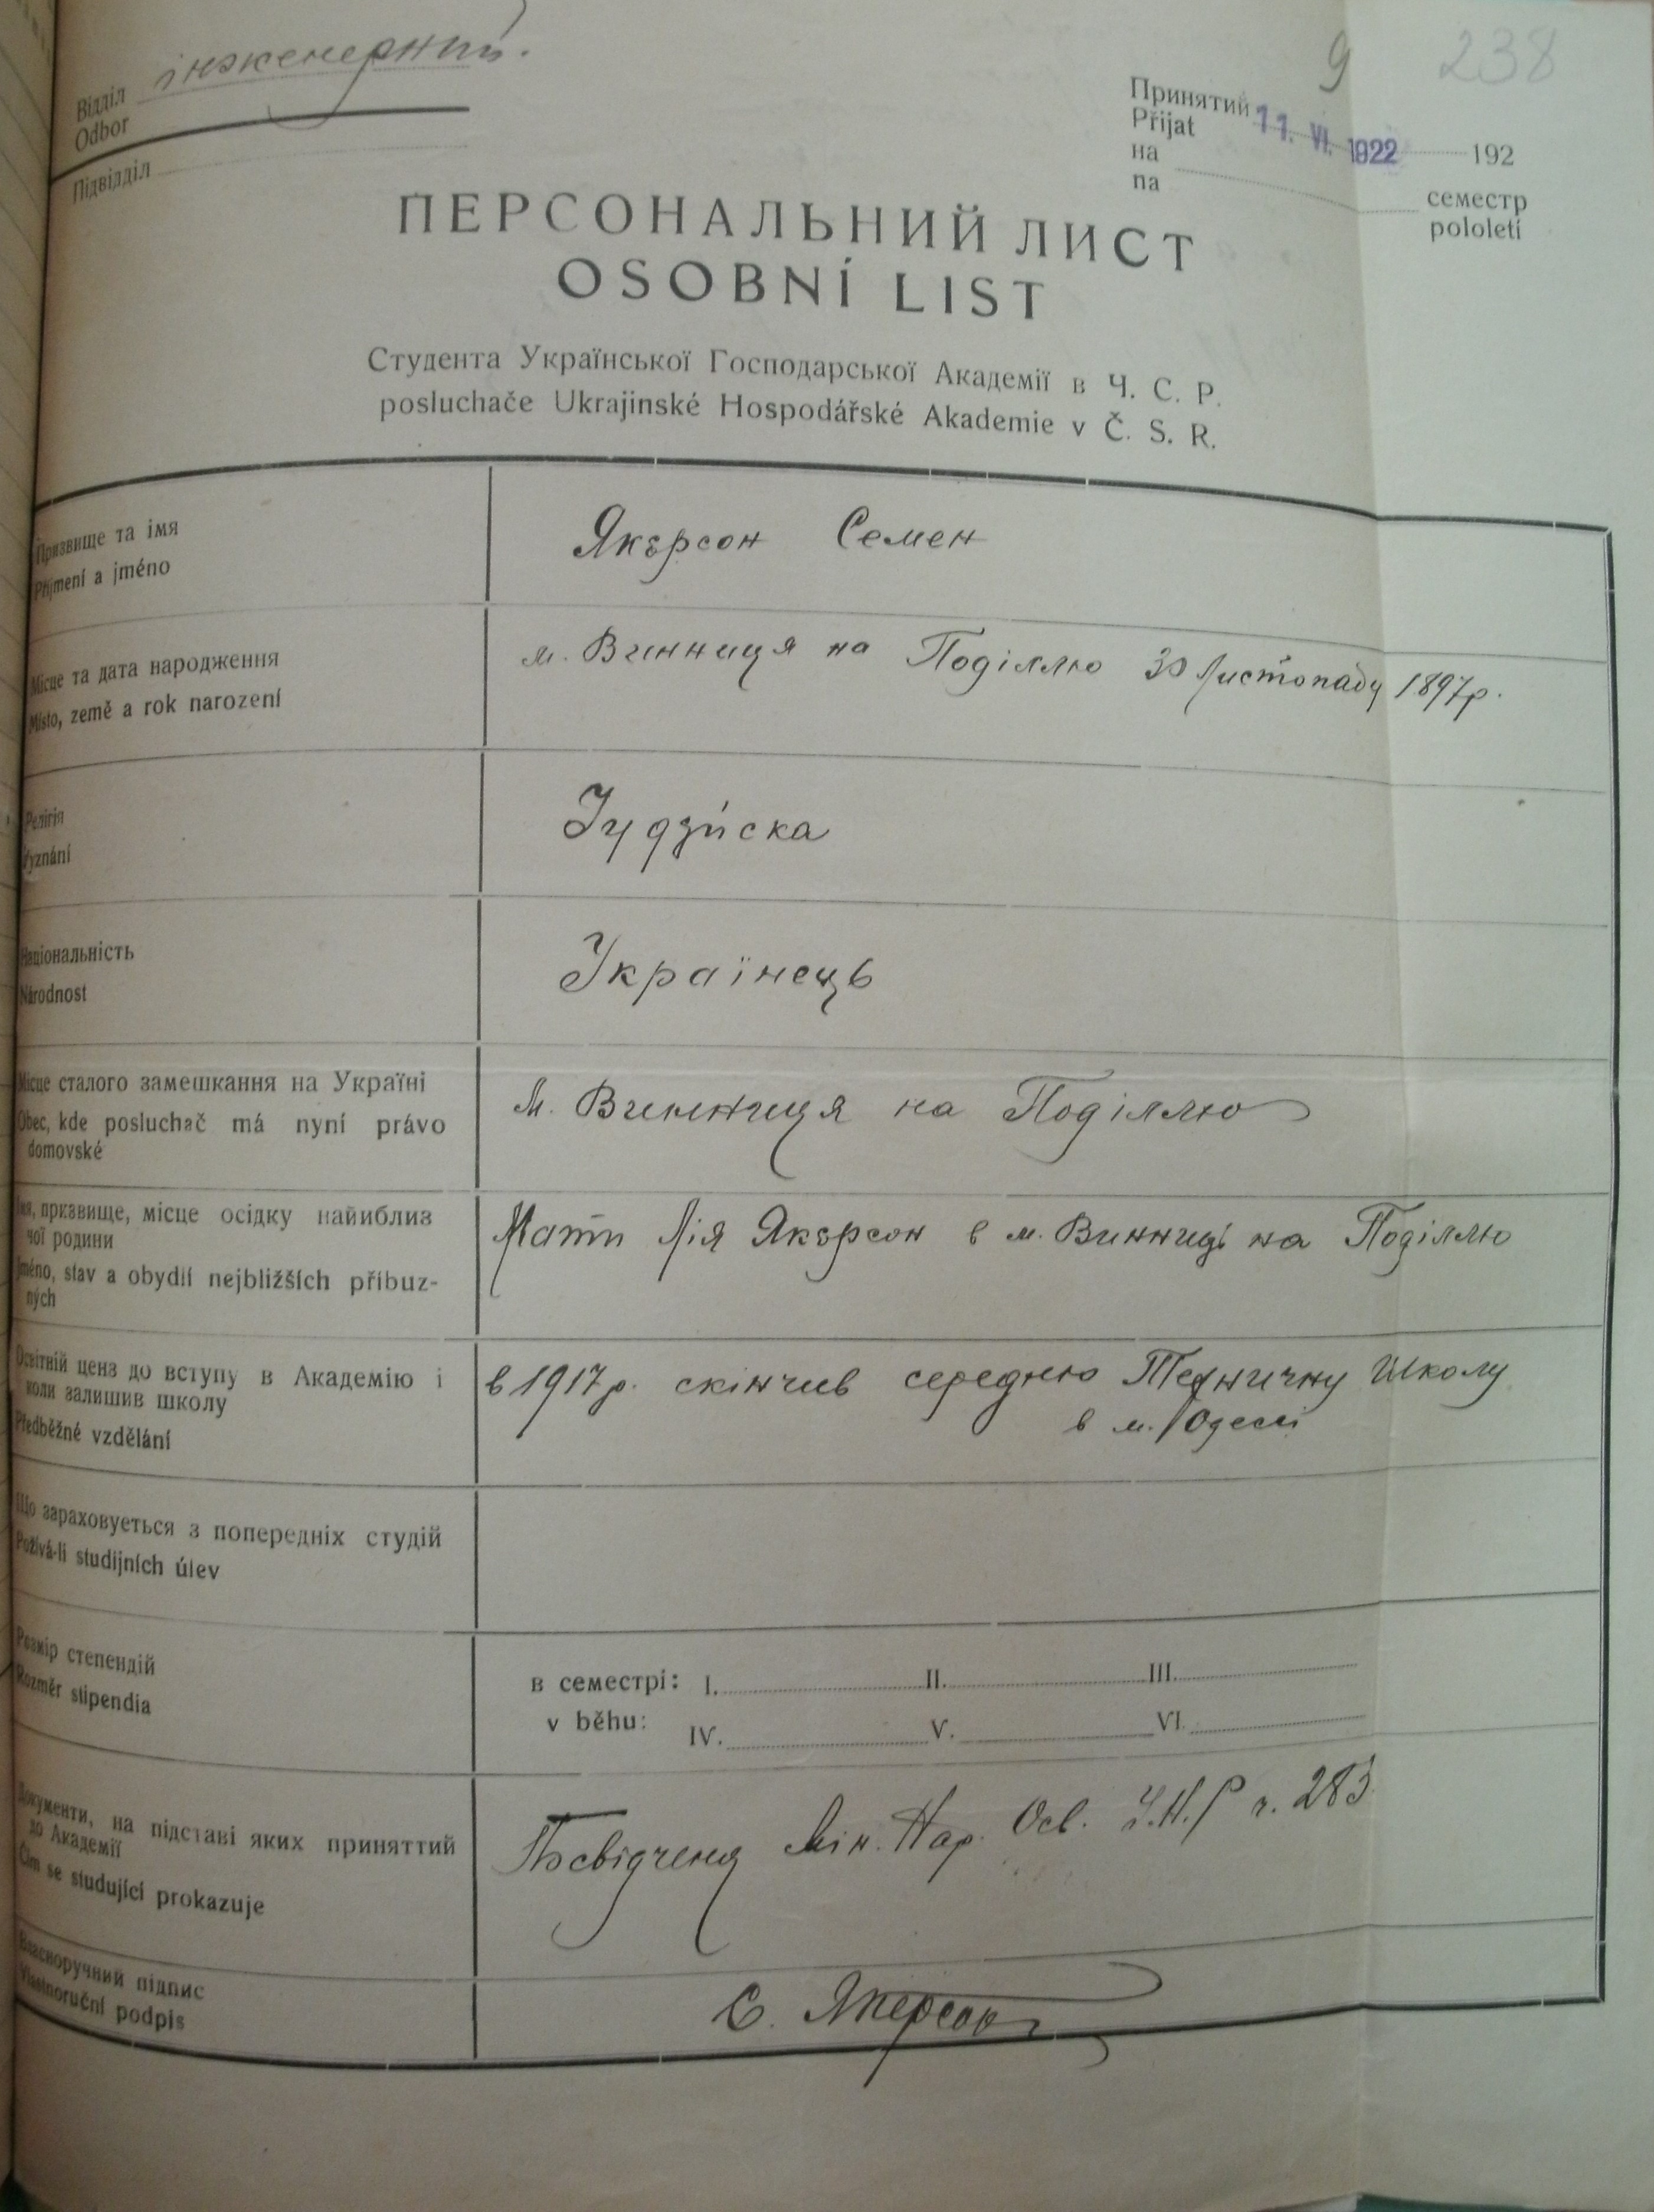 9 238
Відділ інженерний.
Odbor
Підвідділ
Принятий 11. VI. 1922 192
Přijat
на
na
семестр
pololetí
ПЕРСОНАЛЬНИЙ ЛИСТ
OSOBNÍ LIST
Студента Української Господарської Академії в Ч. С. Р.
posluchače Ukrajinské Hospodářské Akademie v Č. S. R.
Призвище та імя
Příjmení a jméno
Якэрсон Семен
Місце та дата народження
Místo, země a rok narození
м. Винниця на Поділлю 30 Листопаду 1897р.
Релігія
Vyznání
Іудэйска
Національність
Národnost
Українець
Місце сталого замешкання на Україні
Obec, kde posluchač má nyní právo
domovské
м. Винниця на Поділлю
Імя, призвище, місце осідку найиблиз
чої родини
Jméno, stav a obydlí nejbližších příbuz-
ných
Мати Лія Якэрсон в м. Винниці на Поділлю
Освітній ценз до вступу в Академію і
коли залишив школу
Předběžné vzdělání
в 1917р. скінчив середню Техничну Школу
в м. Одесі
Що зараховується з попередніх студій
Požívá-li studijních úlev
Розмір степендій
Rozměr stipendia
в семестрі: I. II. III.
v běhu: IV. V. VI.
Документи, на підставі яких приняттий
до Академії
Čím se studující prokazuje
Посвідченя Мін. Нар. Осв. У.Н.Р ч. 283
Власноручний підпис
Vlastnoruční podpis
С. Якерсон